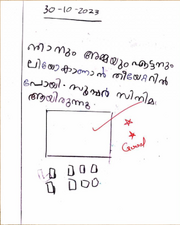 30-10-2023
ഞാനും അമ്മയും ഏട്ടനും
ലിയോകാണാൻ തീയേററിൽ
പോയി. സൂപ്പർ സിനിമ
ആയിരുന്നു.
Good